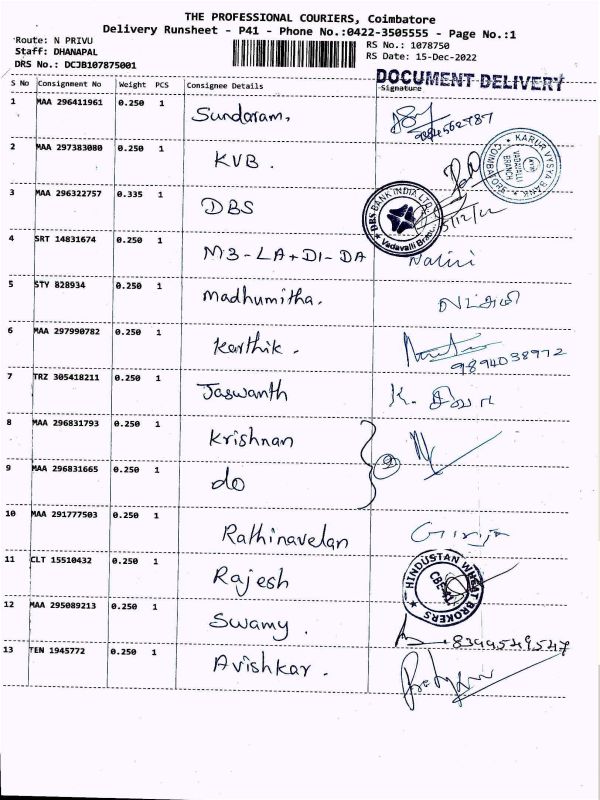 THE PROFESSIONAL COURIERS, Coimbatore
Delivery Runsheet - P41 - Phone No.:0422-3505555 - Page No.:1
Route: N PRIVU
RS No.: 1078750
Staff: DHANAPAL
RS Date: 15-Dec-2022
DRS No.: DCJB107875001
DOCUMENT DELIVERY
S No Consignment No Weight PCS Consignee Details Signature
1 MAA 296411961 0.250 1 Sundaram.
2 MAA 297383080 0.250 1 KVB.
KARUR VYSYA BANK VADAVALLI BRANCH COIMBATORE
3 MAA 296322757 0.335 1 DBS
DBS BANK INDIA LTD. Vadavalli
4 SRT 14831674 0.250 1 M3-LA+DI-DA Nalini
5 STY 828934 0.250 1 Madhumitha.
6 MAA 297990782 0.250 1 Karthik. 9894038972
7 TRZ 305418211 0.250 1 Jaswanth K. சிவா
8 MAA 296831793 0.250 1 Krishnan
9 MAA 296831665 0.250 1 do 2
10 MAA 291777503 0.250 1 Rathinavelan Girija
11 CLT 15510432 0.250 1 Rajesh
HINDUSTAN WHEAT BROKERS
12 MAA 295089213 0.250 1 Swamy. 8399549547
13 TEN 1945772 0.250 1 Avishkar.